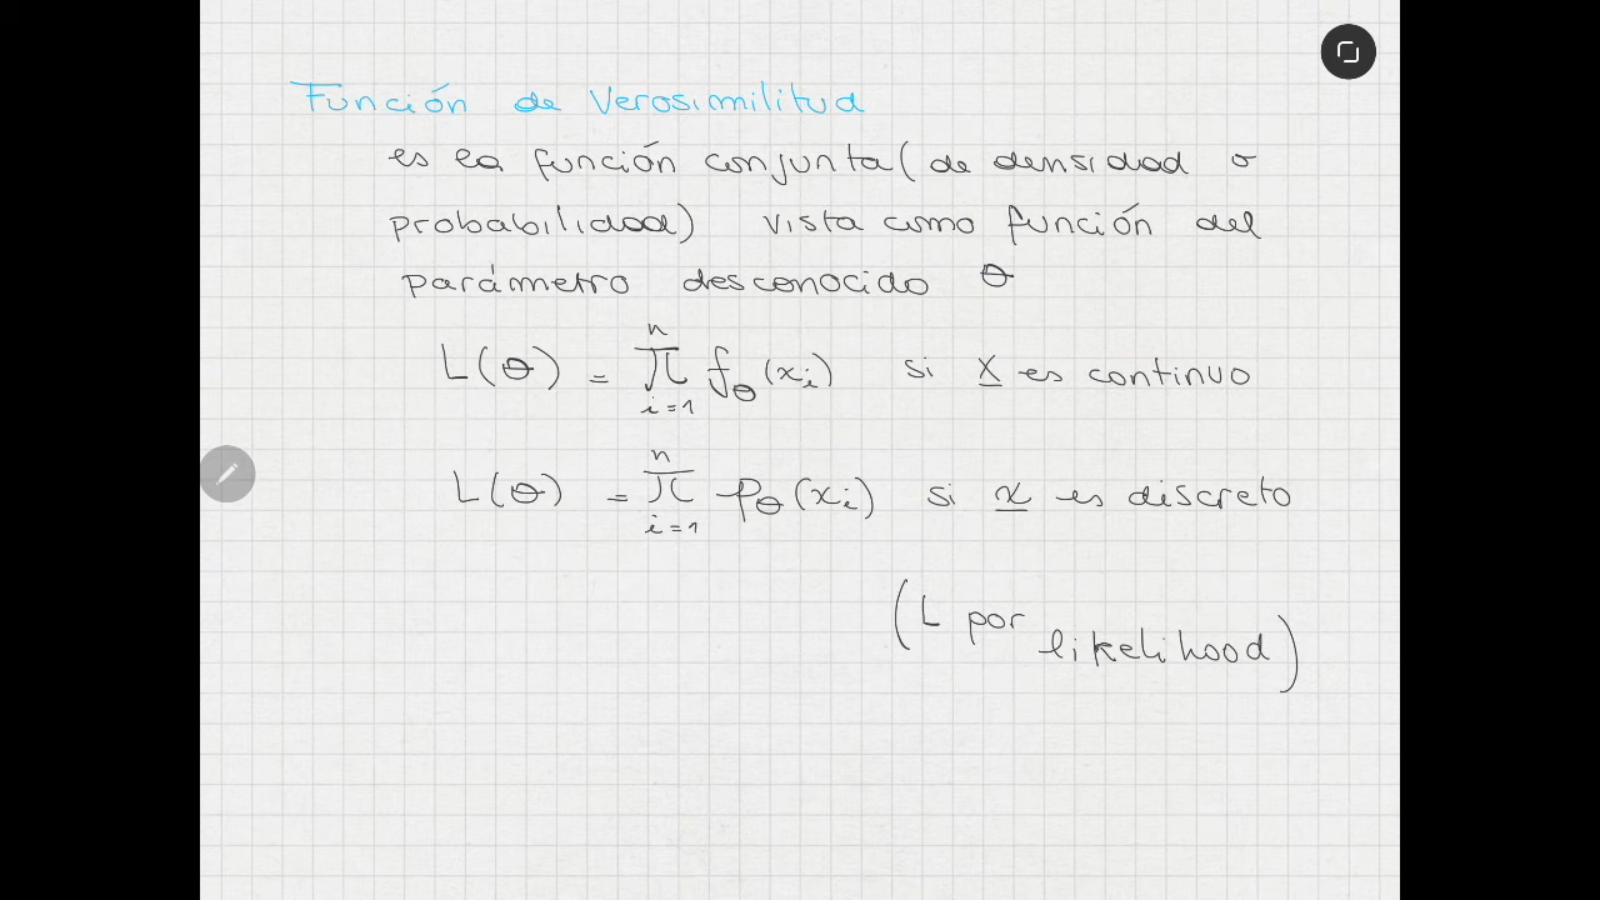 Función de Verosimilitud
es la función conjunta (de densidad o
probabilidad) vista como función del
parámetro desconocido θ
L(θ) = ∏_{i=1}^{n} f_θ(x_i) si X es continuo
L(θ) = ∏_{i=1}^{n} p_θ(x_i) si x es discreto
(L por
likelihood)